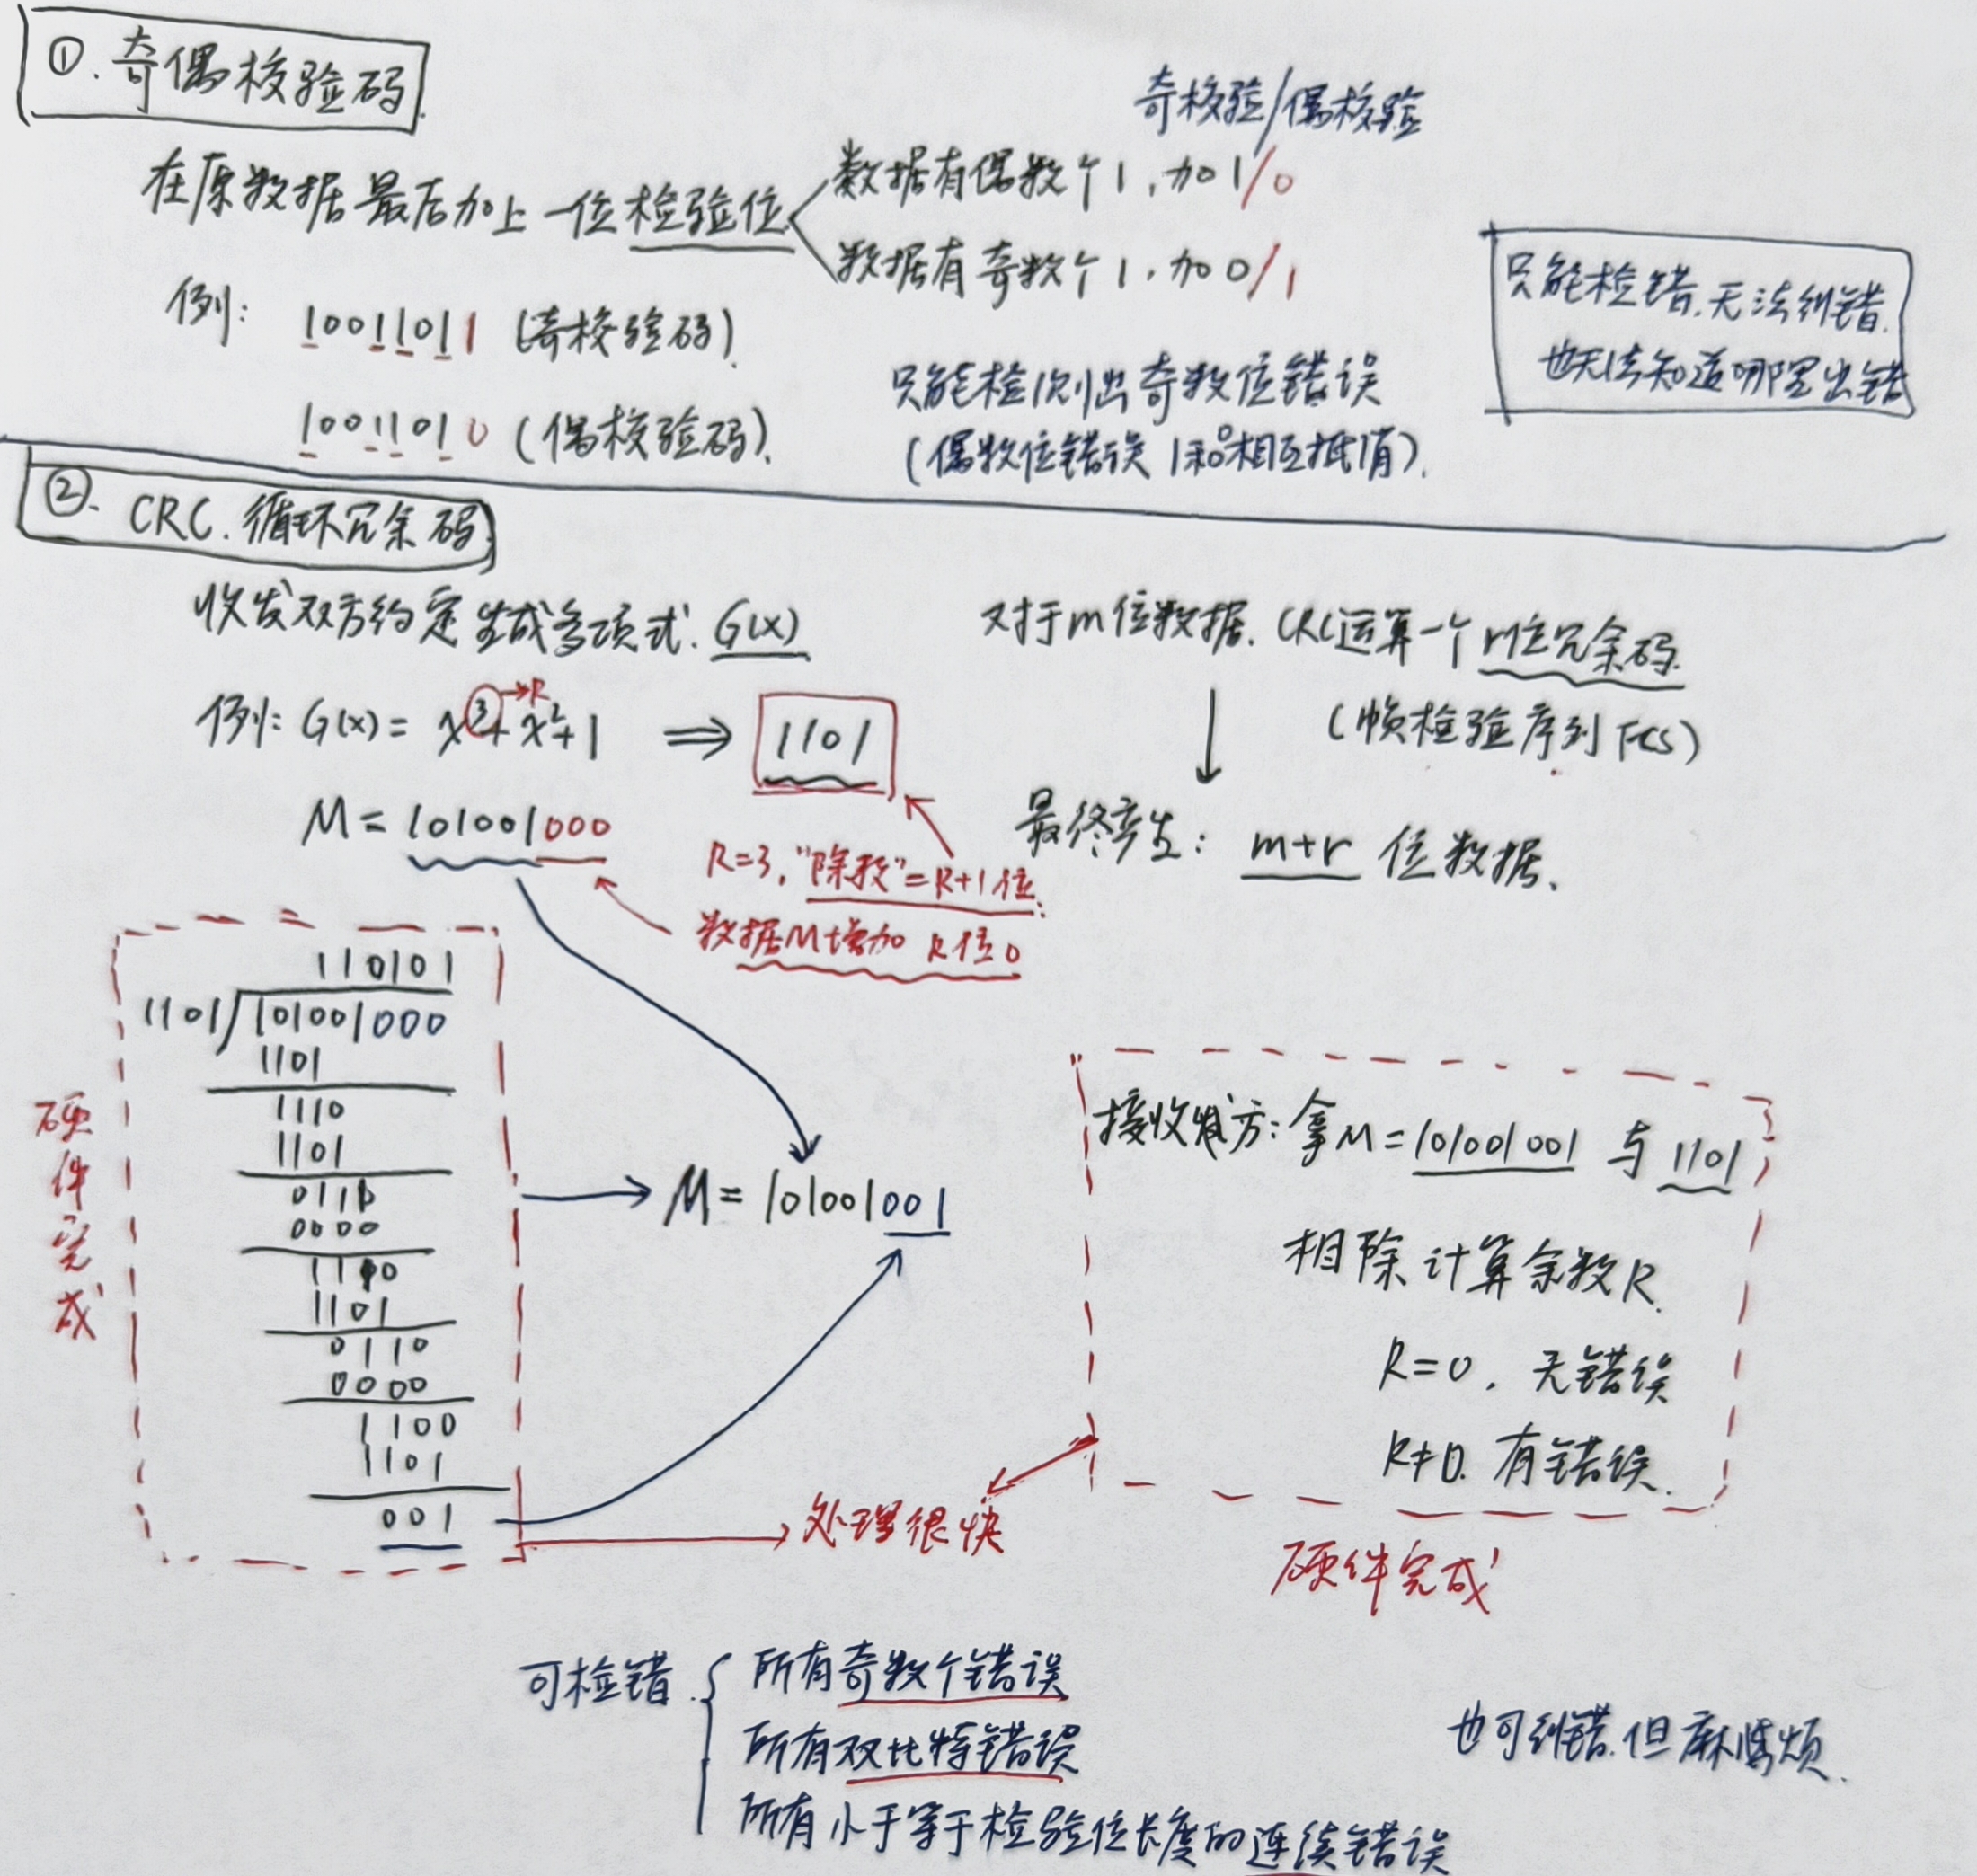 ①.奇偶校验码.
奇校验/偶校验
在原数据最后加上一位检验位
数据有偶数个1,加01/0
数据有奇数个1,加00/1
例: 10011011 (奇校验码).
10011010 (偶校验码).
只能检测出奇数位错误
(偶数位错误 1和0相互抵消).
只能检错.无法纠错.
也无法知道哪里出错
②. CRC.循环冗余码.
收发双方约定生成多项式. G(x)
例: G(x) = x³+x²+1 ⇒ 1101
→R
M = 101001000
R=3,"除数"=R+1位.
数据M增加 R位0
对于m位数据. CRC运算一个r位冗余码.
(帧检验序列FCS)
最终产生: m+r 位数据.
硬件完成
110101
1101/101001000
1101
1110
1101
0111
0000
1110
1101
0110
0000
1100
1101
001
M = 101001001
接收方:拿M=101001001 与 1101
相除计算余数R.
R=0. 无错误
R≠0. 有错误.
处理很快
硬件完成
可检错.
所有奇数个错误
所有双比特错误
所有小于等于检验位长度的连续错误
也可纠错.但麻烦.